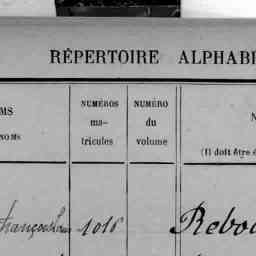 RÉPERTOIRE ALPHABI
MS
NOMS
NUMÉROS
ma-
tricules
NUMÉRO
du
volume
N
(Il doit être é
1016
Rebo